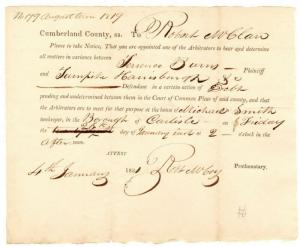 No 179 August term 1819
Cumberland County, ss. To Robert McClan
Please to take Notice, That you are appointed one of the Arbitrators to hear and determine
all matters in variance between Terence Burns Plaintiff
and
Defendant in a certain action of Debt
pending and undetermined between them in the Court of Common Pleas of said county, and that
the Arbitrators are to meet for that purpose at the house of Michael Smith
innkeeper, in the Borough of Carlisle on Friday
the day of January inst at 2 o'clock in the
After noon.
ATTEST
4th January 182 Rob McCoy Prothonotary.